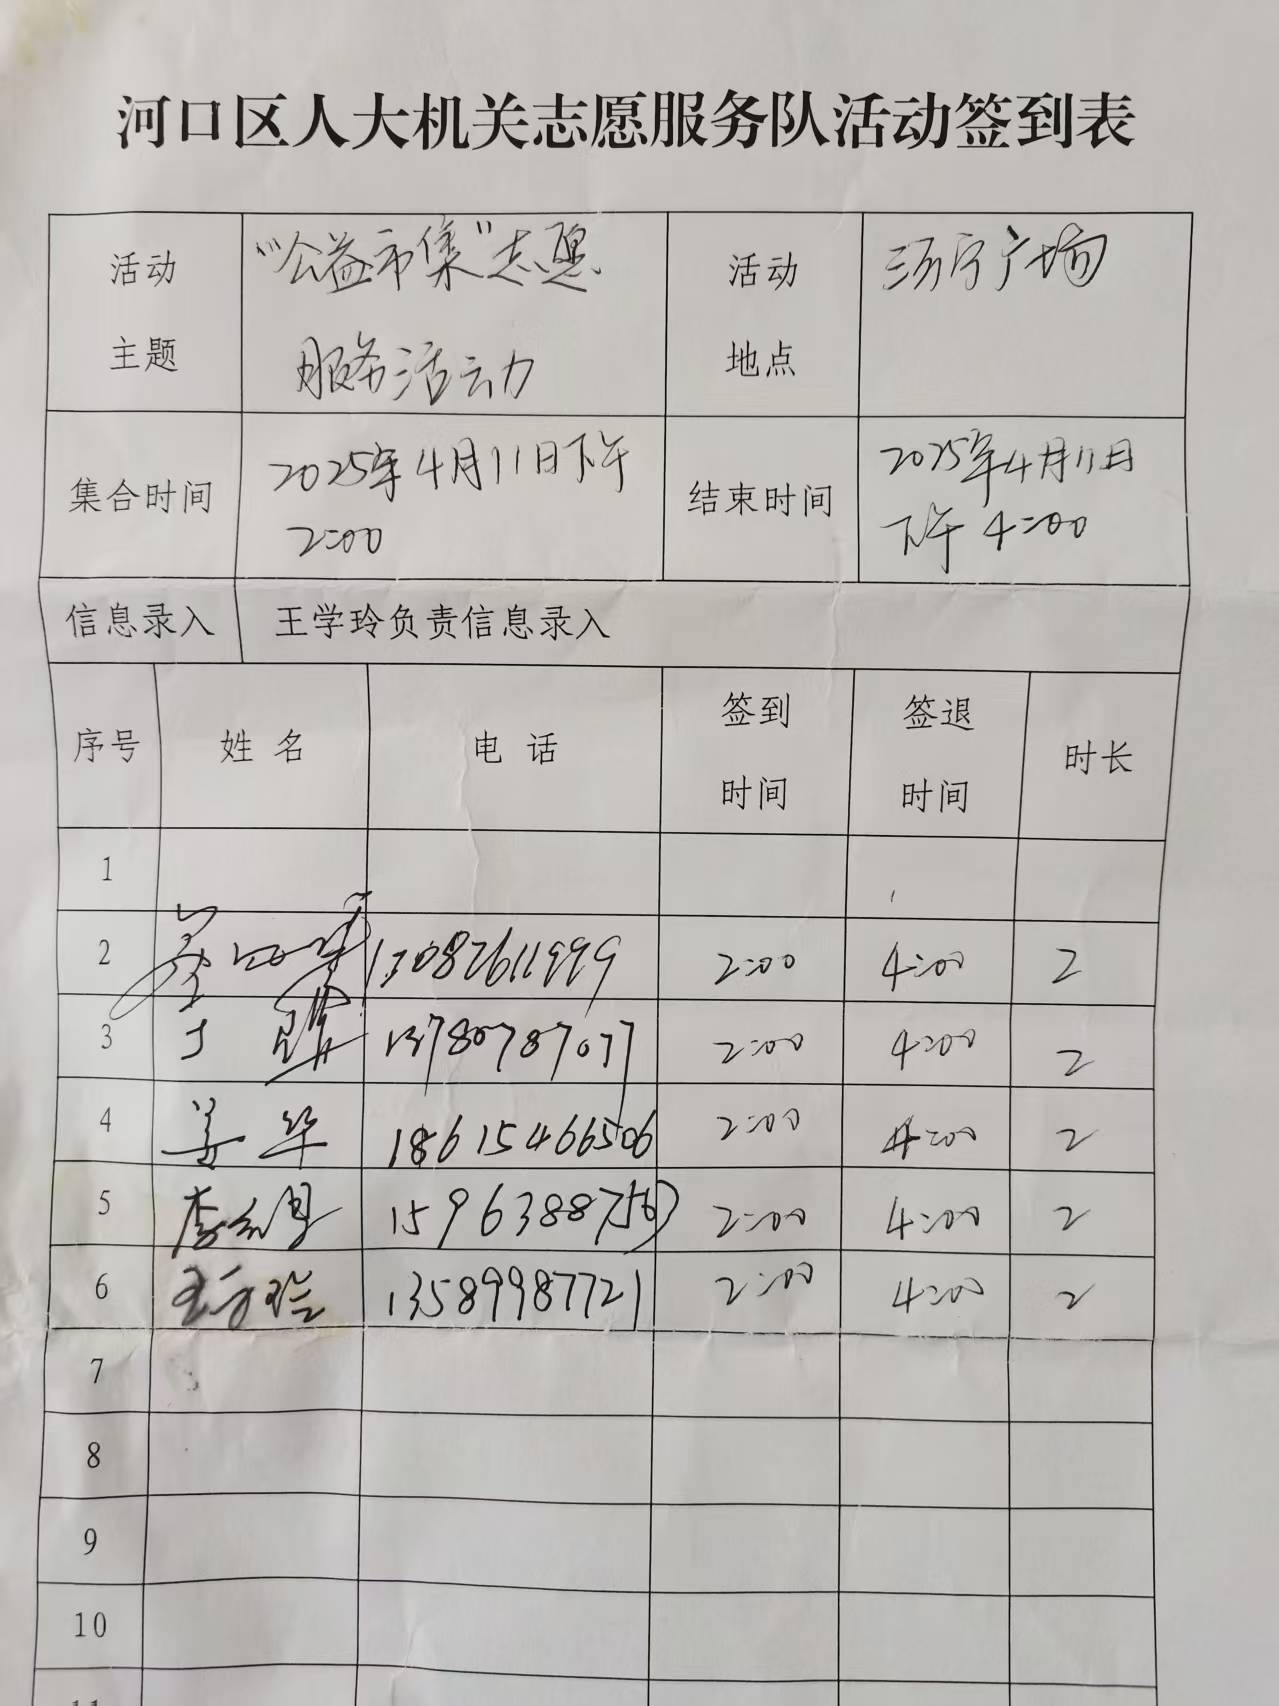 河口区人大机关志愿服务队活动签到表
活动主题 “公益市集”志愿服务活动 活动地点 广场
集合时间 2025年4月11日下午2:00 结束时间 2025年4月11日下午4:00
信息录入 王学玲负责信息录入
序号 姓名 电话 签到时间 签退时间 时长
1
2 13082611999 2:00 4:00 2
3 13780787077 2:00 4:00 2
4 姜华 18615466506 2:00 4:00 2
5 2:00 4:00 2
6 王学玲 13589987721 2:00 4:00 2
7
8
9
10
11